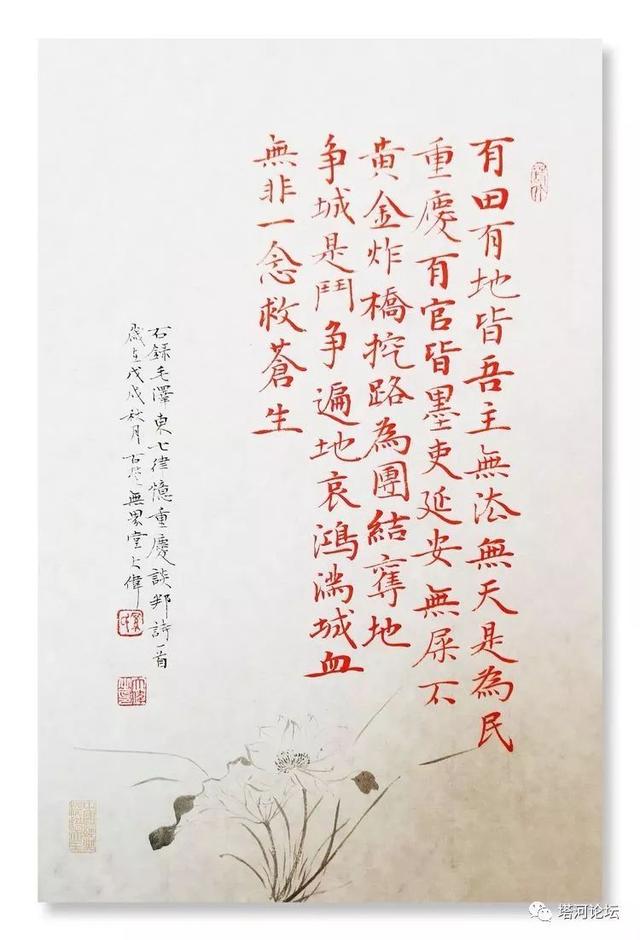 有田有地皆吾主無法無天是為民
重慶有官皆墨吏延安無屎不
黃金炸橋挖路為團結奪地
争城是鬥争遍地哀鴻滿城血
無非一念救蒼生
右録毛澤東七律憶重慶談判詩一首
歲在戊戌秋月無界堂大偉
塔河论坛